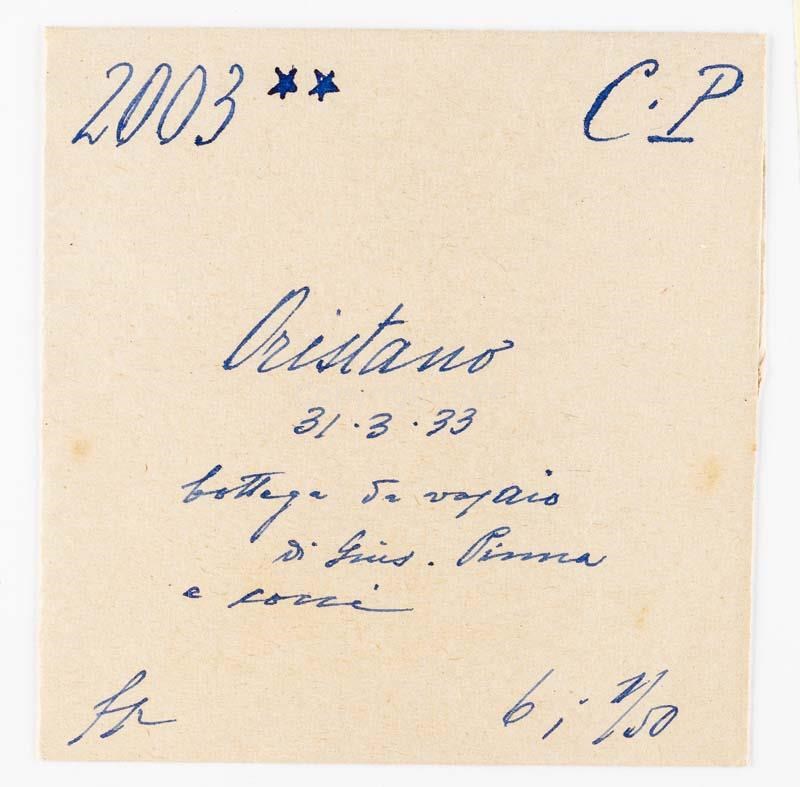 2003 ** C.P
Oristano
31.3.33
bottega da vasaio
di Gius. Pinna
e
6; 1/50